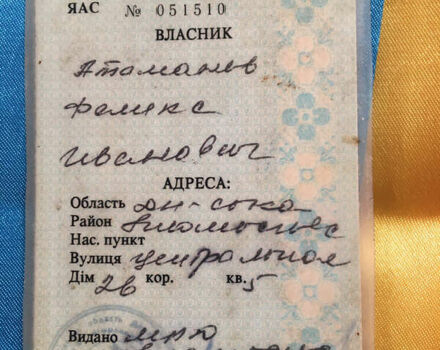 ЯАС № 051510
ВЛАСНИК
Атаманов
Феликс
Иванович
АДРЕСА:
Область Дн-ська
Район
Нас. пункт
Вулиця Центральная
Дім 26 кор. кв. 5
Видано МРВ